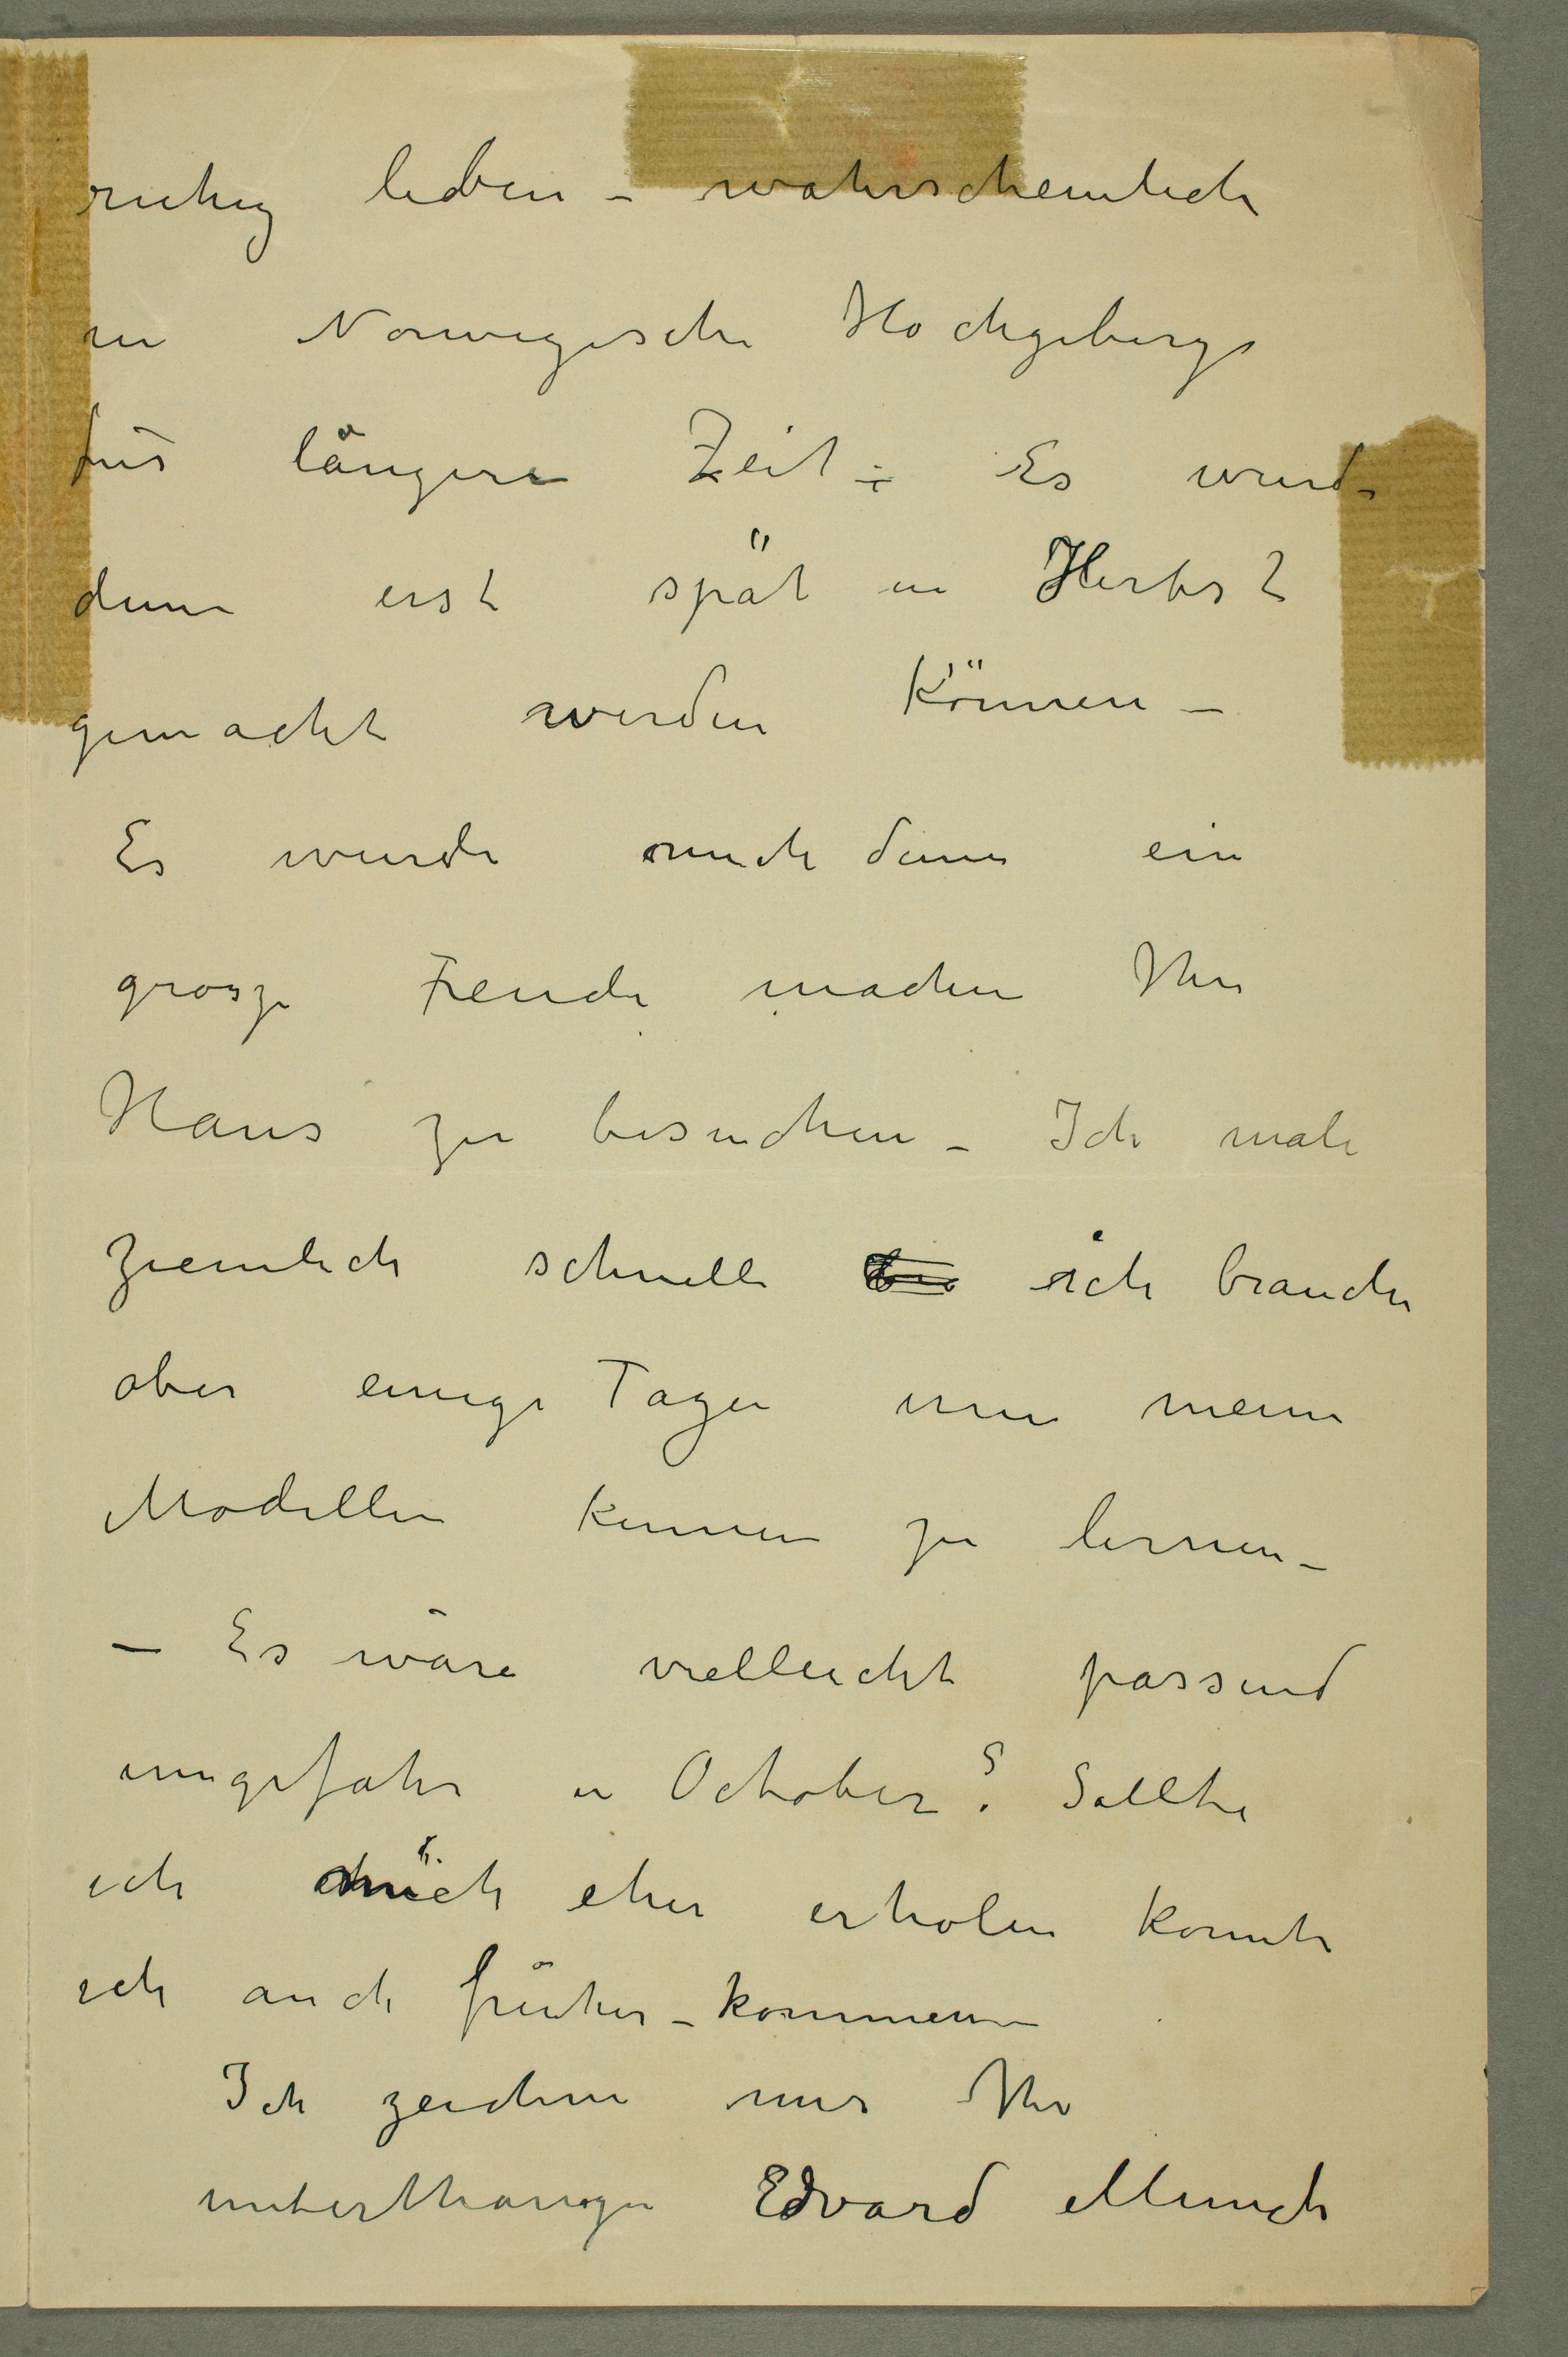 ruhig leben – wahrscheinlich
in Norwegische Hochgebirge
für längere Zeit – Es wurde
denn erst spät in Herbst
gemacht werden können –
Es wurde mich denn ein
grosze Freude machen Ihr
Haus zu besuchen – Ich male
ziemlich schnell ich brauche
aber einige Tagen um meine
Modellen kennen zu lernen –
– Es wäre vielleicht passend
ungefahr in October? Sollte
ich mich eher erholen konnte
ich auch früher – kommen –
Ich zeichne mir Ihr
unterthanigen Edvard Munch